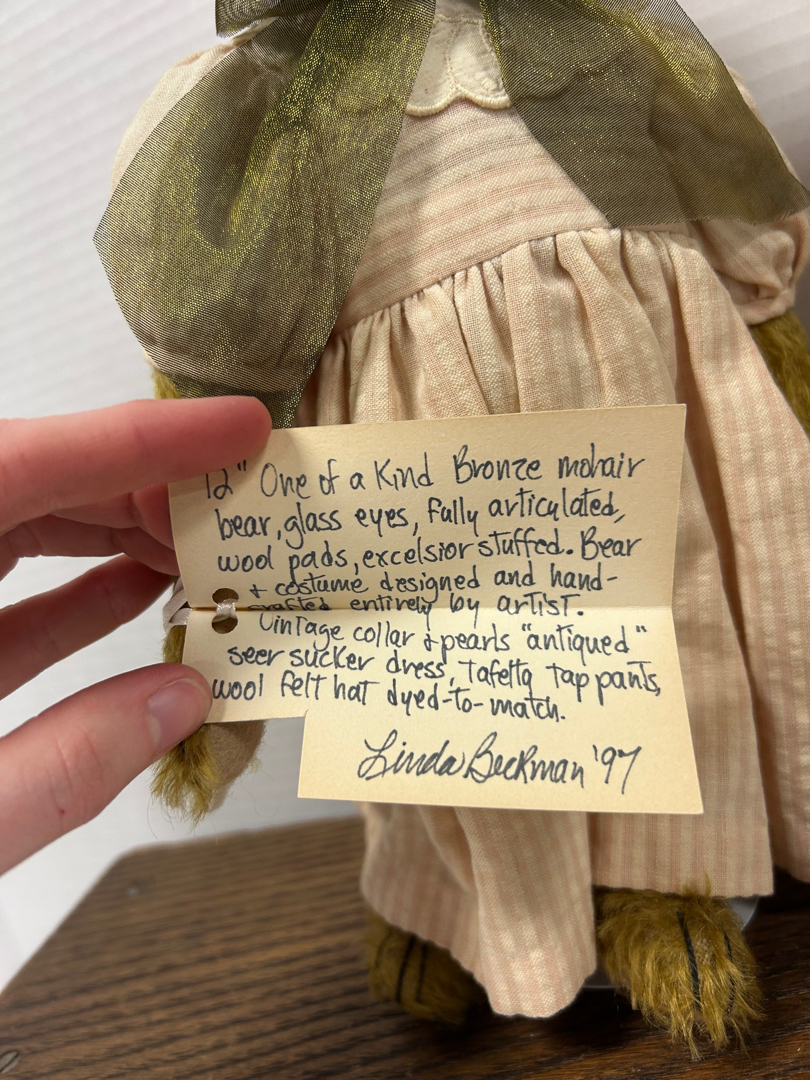 12" One of a Kind Bronze mohair
bear, glass eyes, fully articulated,
wool pads, excelsior stuffed. Bear
+ costume designed and hand-
crafted entirely by artist.
Vintage collar + pearls "antiqued"
seer sucker dress, Tafetta Tap pants,
wool felt hat dyed-to-match.
Linda Beckman '97